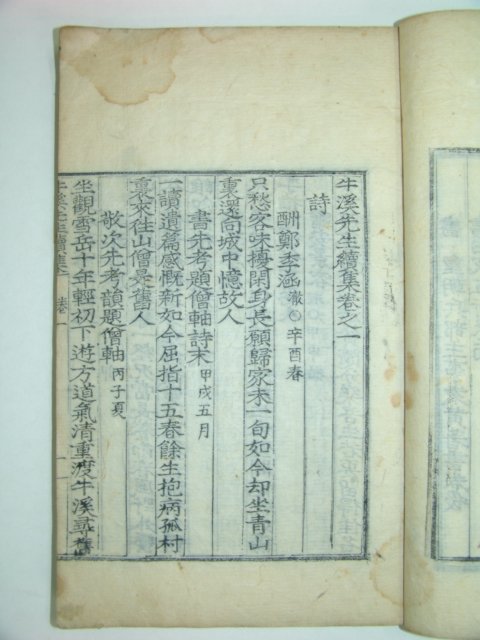 牛溪先生續集卷之一
詩
酬鄭季涵 澈○辛酉春
只愁客味梅閑身長願歸家未一旬如今却坐青山
裏還向城中憶故人
書先考題僧軸詩末 甲戌五月
一讀遺篇感慨新如今屈指十五春餘生抱病孤村
裏來往山僧是舊人
敬次先考韻題僧軸 丙子夏
坐觀雪岳十年輕初下遊方道氣清重渡牛溪尋舊
牛溪先生續集 卷一 一